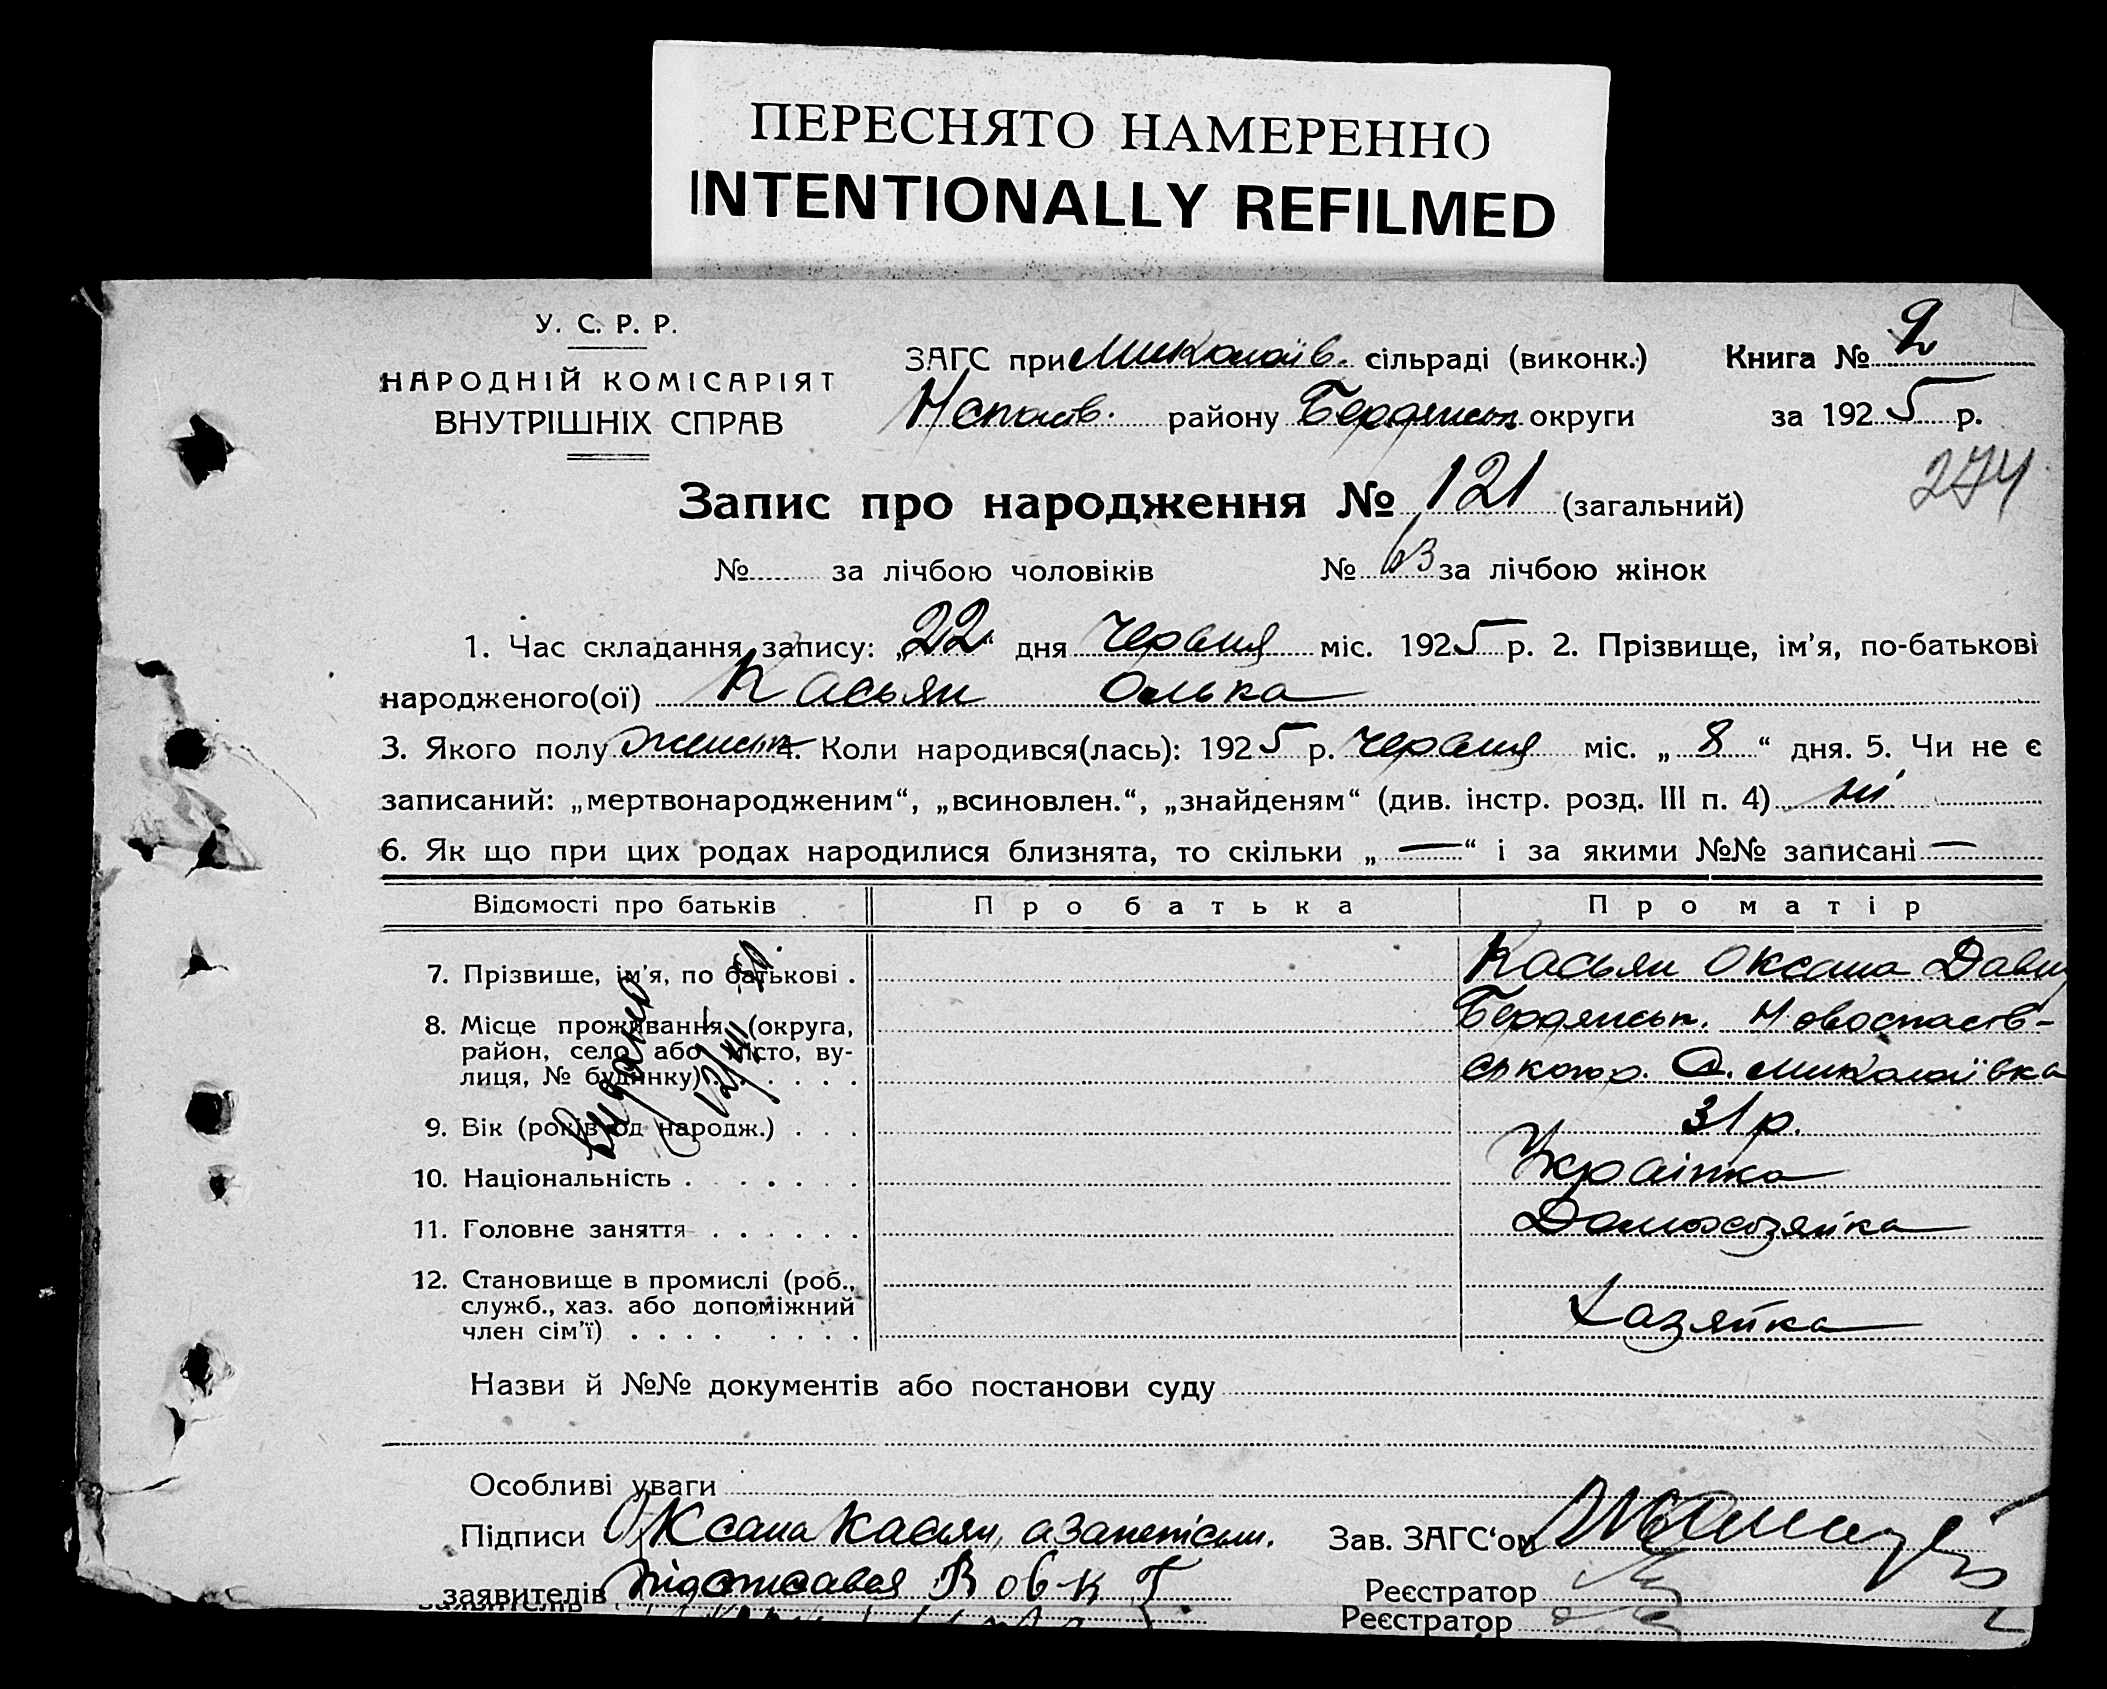 ПЕРЕСНЯТО НАМЕРЕННО
INTENTIONALLY REFILMED
У. С. Р. Р.
НАРОДНІЙ КОМІСАРІЯТ
ВНУТРІШНІХ СПРАВ
ЗАГС при Миколаїв. сільраді (виконк.)
Нспасів. району Бердянськ. округи
Книга № 2
за 1925 р.
274
Запис про народження № 121 (загальний)
№ за лічбою чоловіків № 63 за лічбою жінок
1. Час складання запису: „22“ дня червня міс. 1925 р. 2. Прізвище, ім’я, по-батькові
народженого(ої) Касьян Олька
3. Якого полу женськ 4. Коли народився(лась): 1925 р. червня міс. „8“ дня. 5. Чи не є
записаний: „мертвонародженим“, „всиновлен.“, „знайденям“ (див. інстр. розд. III п. 4) ні
6. Як що при цих родах народилися близнята, то скільки „—“ і за якими №№ записані —
Відомості про батьків Про батька Про матір
7. Прізвище, ім’я, по батькові . Касьян Оксана Давид
8. Місце проживання (округа, Бердянськ. Новоспасів-
район, село або місто, ву-
лиця, № будинку) . . . . . ського р. с. Миколаївка
9. Вік (років од народж.) . . . 31 р.
10. Національність . . . . . . Українка
11. Головне заняття . . . . . . Домохозяйка
12. Становище в промислі (роб.,
служб., хаз. або допоміжний
член сім’ї) . . . . . . . . Хазяйка
Видано
12/VII
Назви й №№ документів або постанови суду
Особливі уваги
Підписи Оксана Касьян, а за неписьм. Зав. ЗАГС‘ом
заявителів підписавсь Вовк Т Реєстратор
заявителів Реєстратор